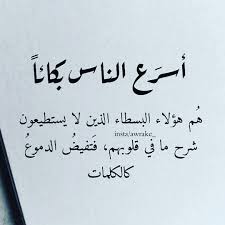 أسرَع الناس بكائاً
هُم هؤلاء البسطاء الذين لا يستطيعون
insta/awrake_
شرح ما في قلوبهم، فَتفيضُ الدموعُ
كالكلمات